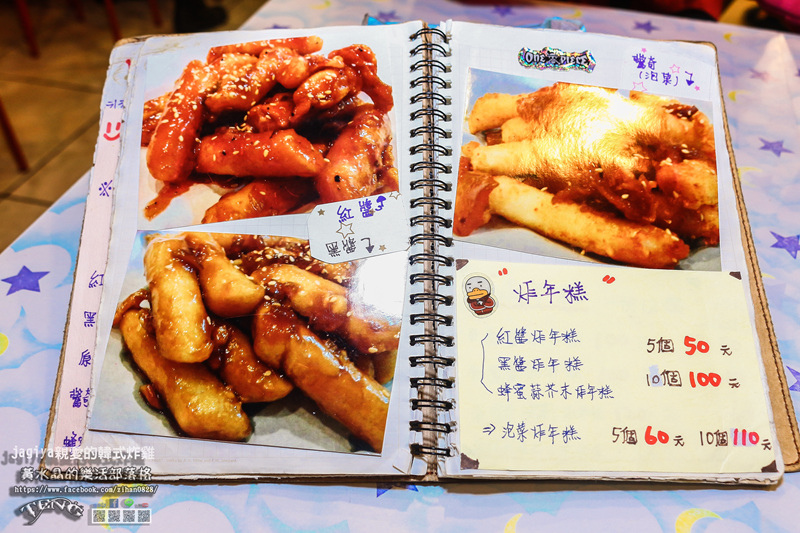 紅
黑
原
ONE PIECE
(泡菜)
"炸年糕"
紅醬炸年糕 5個 50元
黑醬炸年糕 10個 100元
蜂蜜蒜芥末炸年糕
⇒ 泡菜炸年糕 5個 60元 10個 110元
jagiya親愛的韓式炸雞
黃水晶的樂活部落格
https://www.facebook.com/zihan0828/